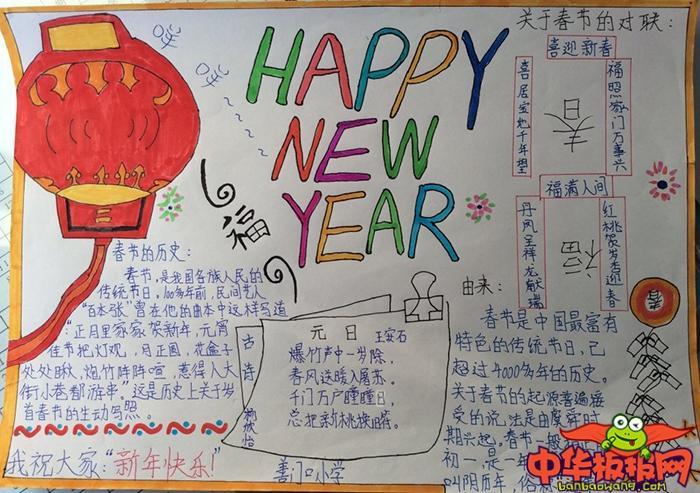 HAPPY
NEW
YEAR
福
春节的历史:
春节,是我国各族人民的
传统节日,100多年前,民间艺人
"百本张"曾在他的曲本中这样写道
"正月里家家贺新年,元宵
佳节把灯观,月正圆,花盒子
处处瞅,炮竹阵阵喧,惹得人大
街小巷都游串。"这是历史上关于岁
首春节的生动写照。
我祝大家:"新年快乐!"
古诗
元日 王安石
爆竹声中一岁除,
春风送暖入屠苏。
千门万户瞳瞳日,
总把新桃换旧符。
善门口小学
关于春节的对联:
喜迎新春
福照家门万事兴
喜居宝地千年旺
春
福满人间
红桃贺岁杏迎春
丹凤呈祥龙献瑞
福
春
由来:
春节是中国最富有
特色的传统节日,已
超过4000多年的历史。
关于春节的起源普遍接
受的说法是由虞舜时
期兴起。春节一般
初一,是一年
叫阴历年,俗
中华板报网
banbaowang.com